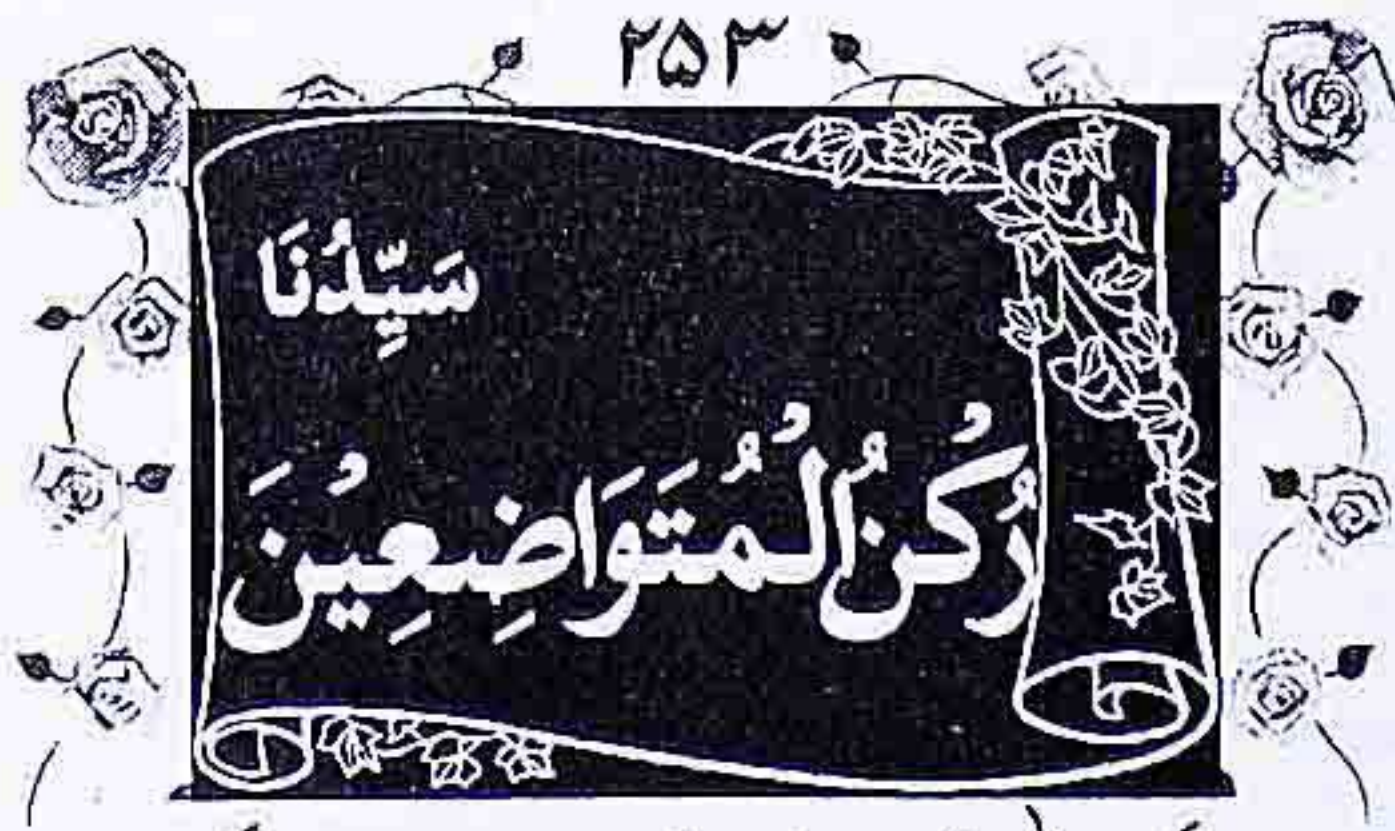 ۲۵۳
سَيِّدُنَا
رُكْنُ الْمُتَوَاضِعِيْنَ